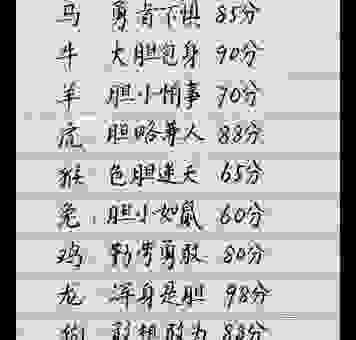 马 勇者不惧 85分
牛 大胆包身 90分
羊 胆小怕事 70分
虎 胆略兼人 88分
猴 色胆迷天 65分
兔 胆小如鼠 60分
鸡 勤劳勇敢 80分
龙 浑身是胆 98分
狗 敢想敢为 88分